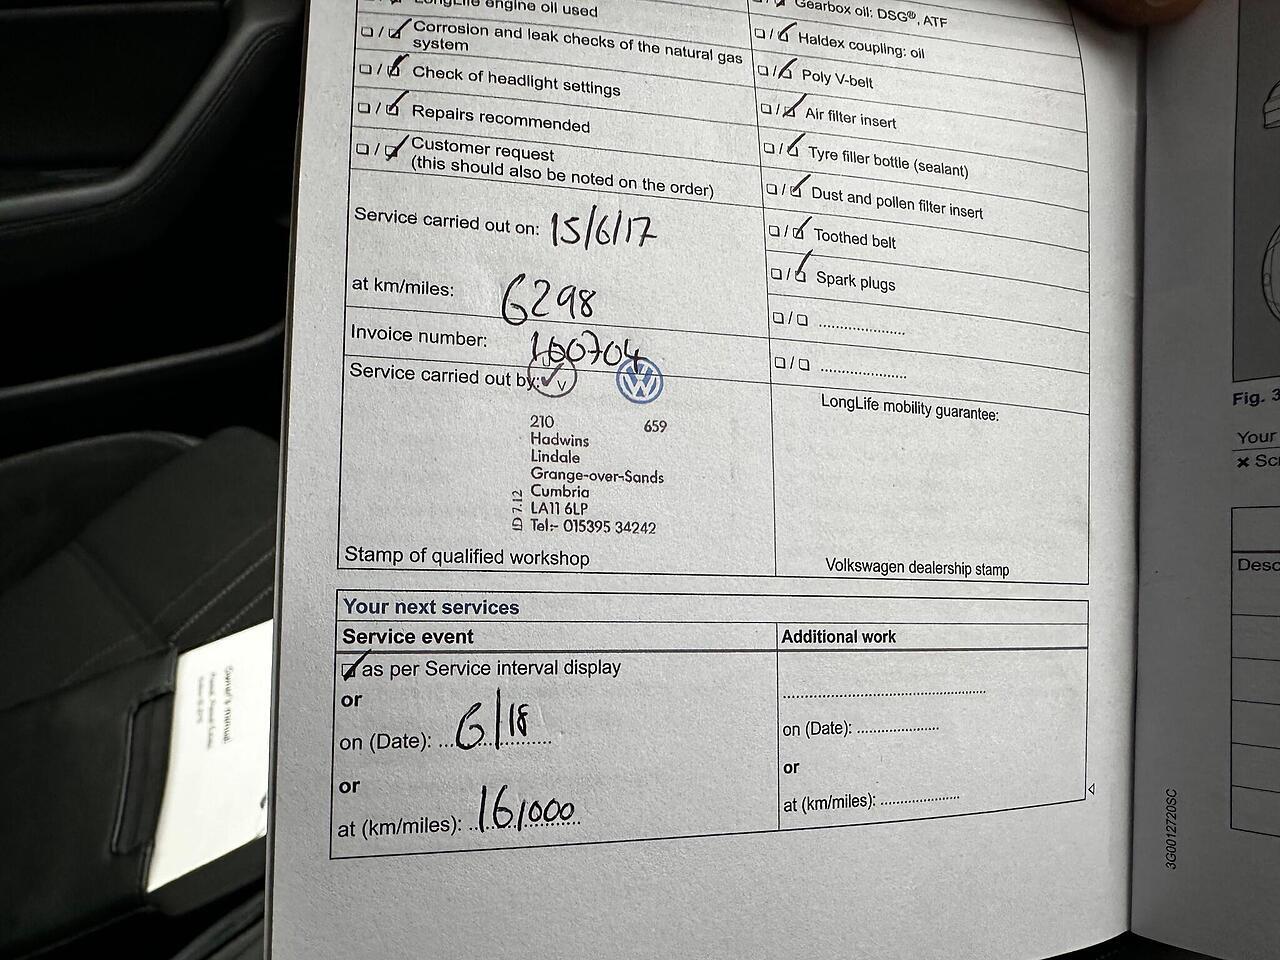 LongLife engine oil used
Corrosion and leak checks of the natural gas
system
Check of headlight settings
Repairs recommended
Customer request
(this should also be noted on the order)
Service carried out on: 15/6/17
at km/miles: 6298
Invoice number: 100704
Service carried out by:
V
VW
210 659
Hadwins
Lindale
Grange-over-Sands
Cumbria
LA11 6LP
Tel:- 015395 34242
ID 7.12
Stamp of qualified workshop
Gearbox oil: DSG®, ATF
Haldex coupling: oil
Poly V-belt
Air filter insert
Tyre filler bottle (sealant)
Dust and pollen filter insert
Toothed belt
Spark plugs
LongLife mobility guarantee:
Volkswagen dealership stamp
Your next services
Service event
as per Service interval display
or
on (Date): 6/18
or
at (km/miles): 16,000
Additional work
on (Date):
or
at (km/miles):
3G0012720SC
Fig. 3
Your
Desc
Owner's manual